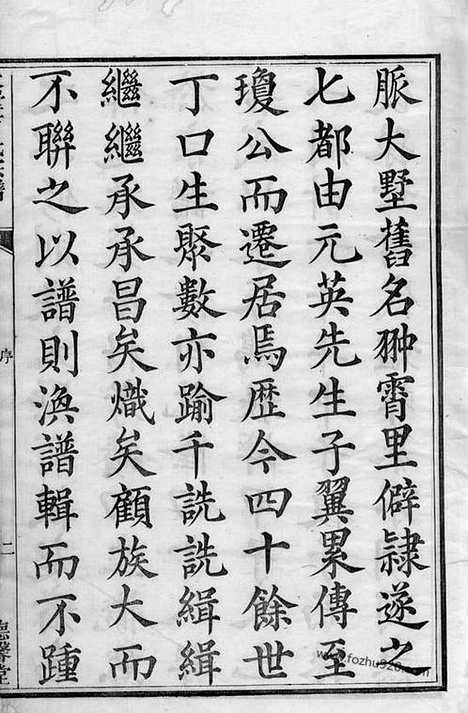 脈大墅舊名翀霄里僻隸遂之
七都由元英先生子翼累傳至
瓊公而遷居焉歷今四十餘世
丁口生聚數亦踰千詵詵緝緝
繼繼承承昌矣熾矣顧族大而
不聯之以譜則渙譜輯而不踵
序
二
www.fozhu920.com